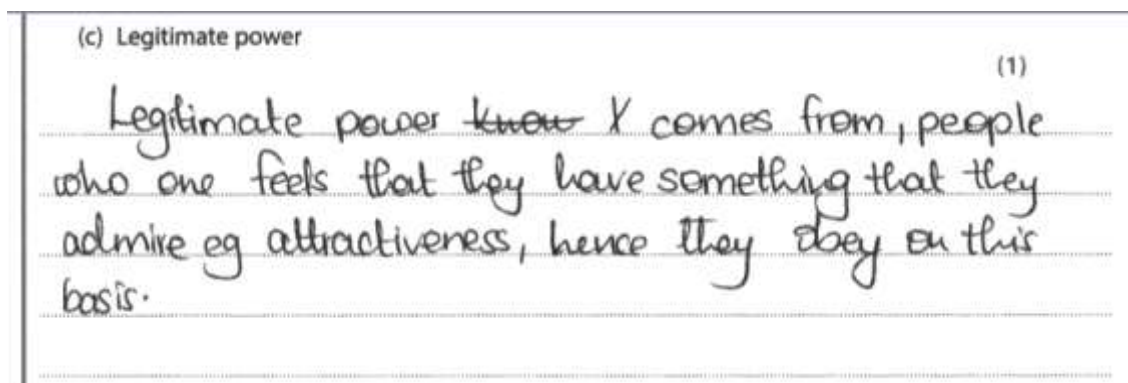 (c) Legitimate power
(1)
Legitimate power know X comes from, people
who one feels that they have something that they
admire eg attractiveness, hence they obey on this
basis.